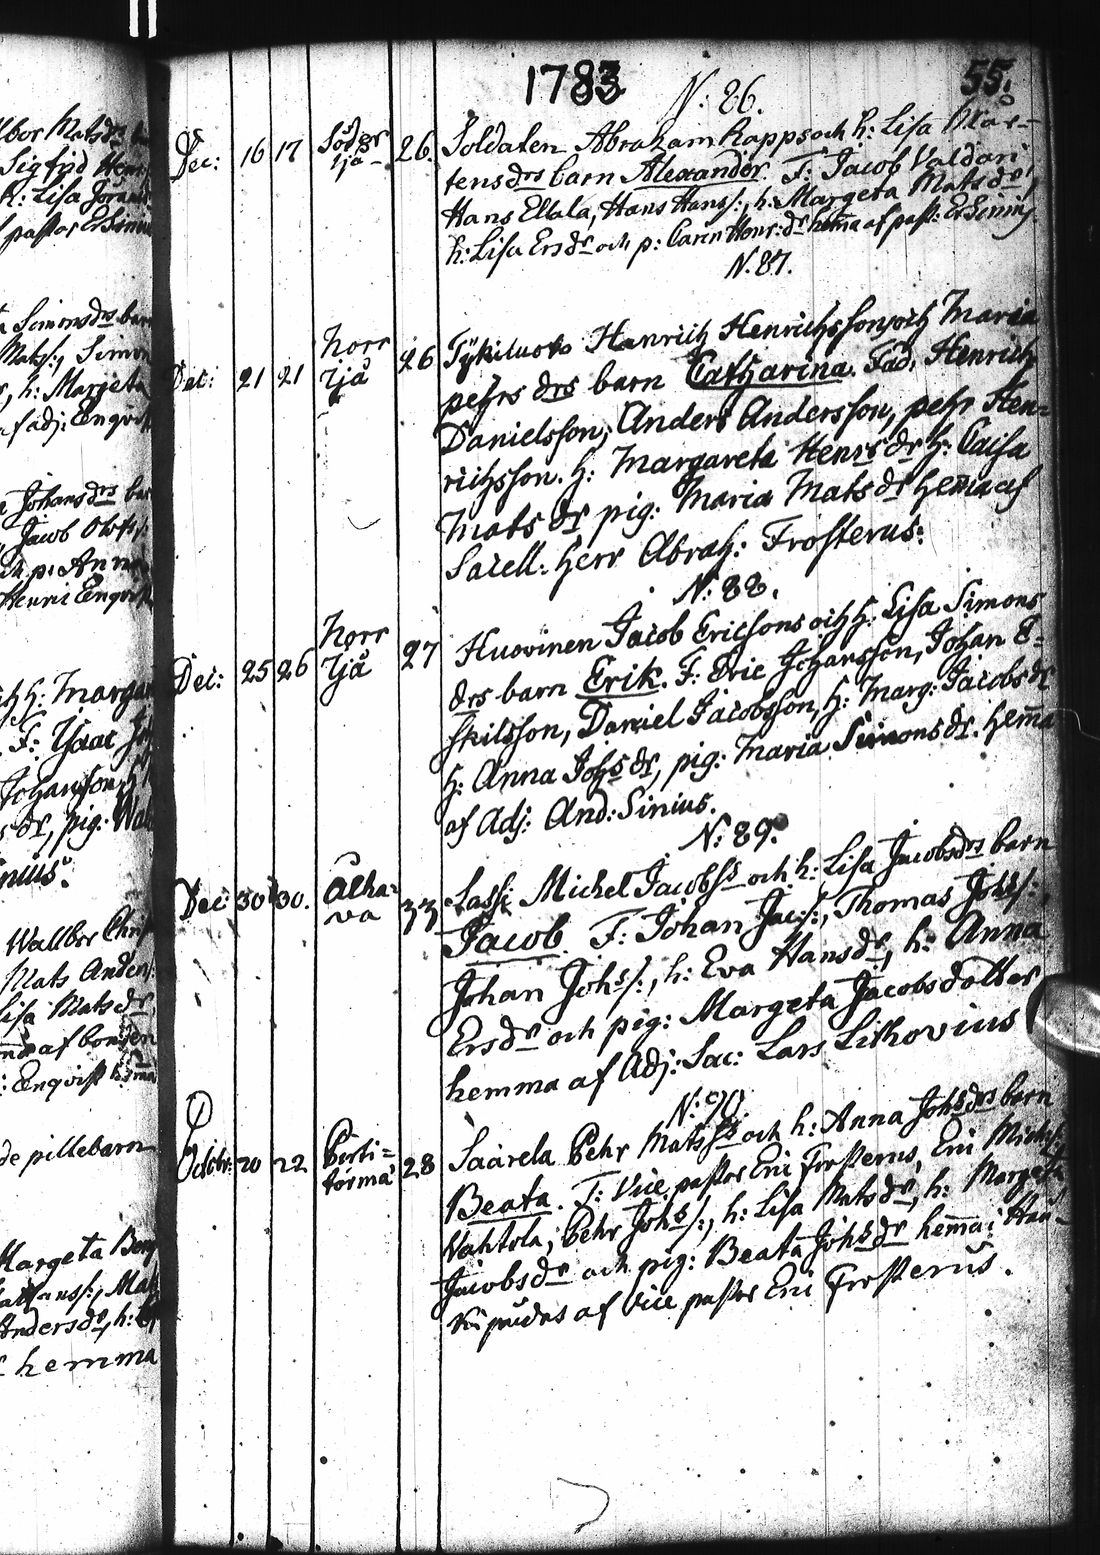 lbor Matsdrs
Sigfrid Henr
h: Lisa Jörans
pastor E Sinius
Simonsdrs barn
Mats/:, Simon
h: Margeta
af adj: Enqvist
Johansdrs
Jacob Olofs/:
p: Anna
Henric Enqvist
h: Margar
F: Isaac
Johansson, h
dr, pig: Wal
nius.
Wallbor Chri
Mats Anders/:
Lisa Matsdr,
af bonden
: Enqvist hema
de pillebarn
Margeta Beng
Mat
Andersdr, h:
hemma
1783 55.
N: 86.
Dec: 16 17 Söder ljå 26. Soldaten Abraham Rapps och h: Lisa Mår-
tensdrs barn Alexander. F: Jacob Valdari
Hans Ellala, Hans Hans/:, h: Margeta Matsdr,
h: Lisa Ersdr och p: Carin Henr: dr hema af past: E Sinius
N. 87.
Dec: 21 21 norr ljå 26 Tykiluoto Hanrich Henrichssons och Maria
pehrs drs barn Catharina. Fad. Henrich
Danielsson, Anders Andersson, pehr Hen=
richsson. h: Margareta Henrs dr h: Caisa
Mats dr pig: Maria Mats dr hema af
Sacell: herr Abrah: Frosterus:
N: 88.
Dec: 25 26 norr ljå 27 Huovinen Jacob Ericsons och h: Lisa Simons
drs barn Erik. F: Eric Johansson, Johan E=
skilsson, Daniel Jacobsson, h: Marg: Jacobs dr
h: Anna Johs dr, pig: Maria Simons dr. hema
af Adj: And: Sinius.
N: 89.
Dec: 30 30. Alha= va 33 Lassi Michel Jacobss och h: Lisa Jacobsdrs barn
Jacob. F: Johan Jac/:, Thomas Johs/:,
Johan Johs/:, h: Eva Hansdr, h: Anna
Ersdr och pig: Margeta Jacobsdotter
hemma af Adj: Sac: Lars Lithovius
N: 90.
Octobr: 20 22 Perti= törmä 28 Saarela Pehr Matss och h: Anna Johsdrs barn
Beata. F: Vice pastor Eric Frosterus, Eric Michs/:
Vahtola, Pehr Johs/:, h: Lisa Matsdr, h: Margeta
Jacobsdr och pig: Beata Johsdr hema i Hau-
kipudas af vice pastor Eric Frosterus.